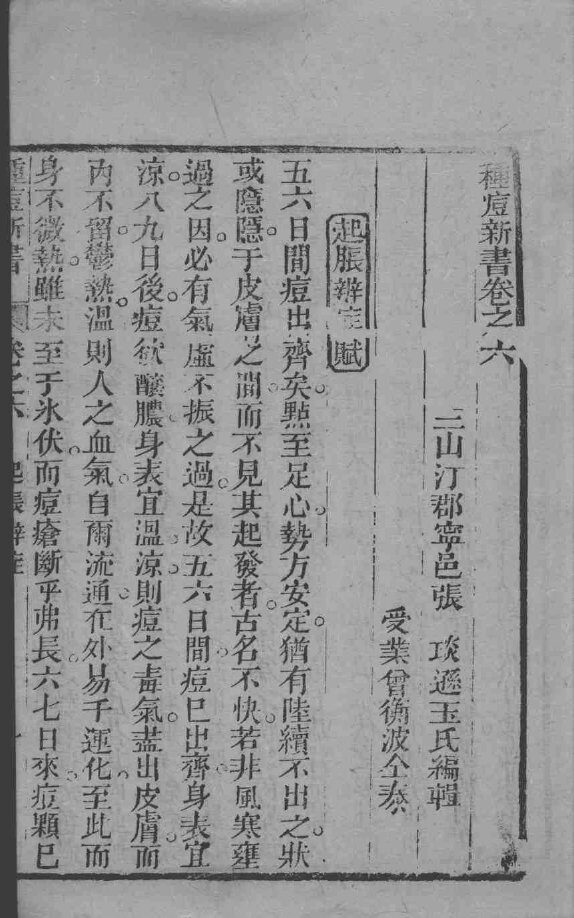 種痘新書卷之六
三山汀郡寧邑張 琰遜玉氏編輯
受業曾衡波仝叅
起脹辨症賦
五六日間痘出齊矣點至足心勢方安定猶有陸續不出之狀
或隱隱于皮膚之間而不見其起發者古名不快若非風寒壅
過之因必有氣虛不振之過是故五六日間痘巳出齊身表宜
涼八九日後痘欲釀膿身表宜溫涼則痘之毒氣盡出皮膚而
內不留鬱熱溫則人之血氣自爾流通在外易于運化至此而
身不微熱雖未至于氷伏而痘瘡斷乎弗長六七日來痘顆巳
種痘新書 卷之六 起脹辨症